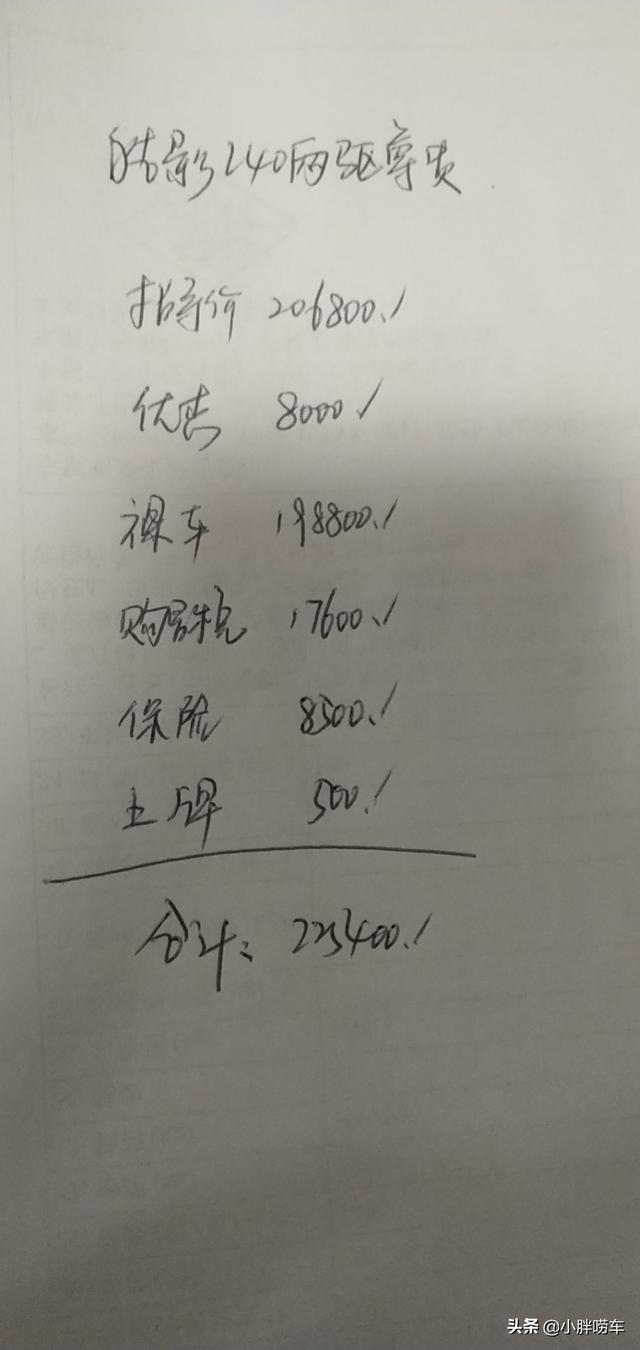 皓影240两驱尊贵
指导价 206800./
优惠 8000/
裸车 198800./
购置税 17600./
保险 8500./
上牌 500./
合计: 225400./
头条 @小胖唠车